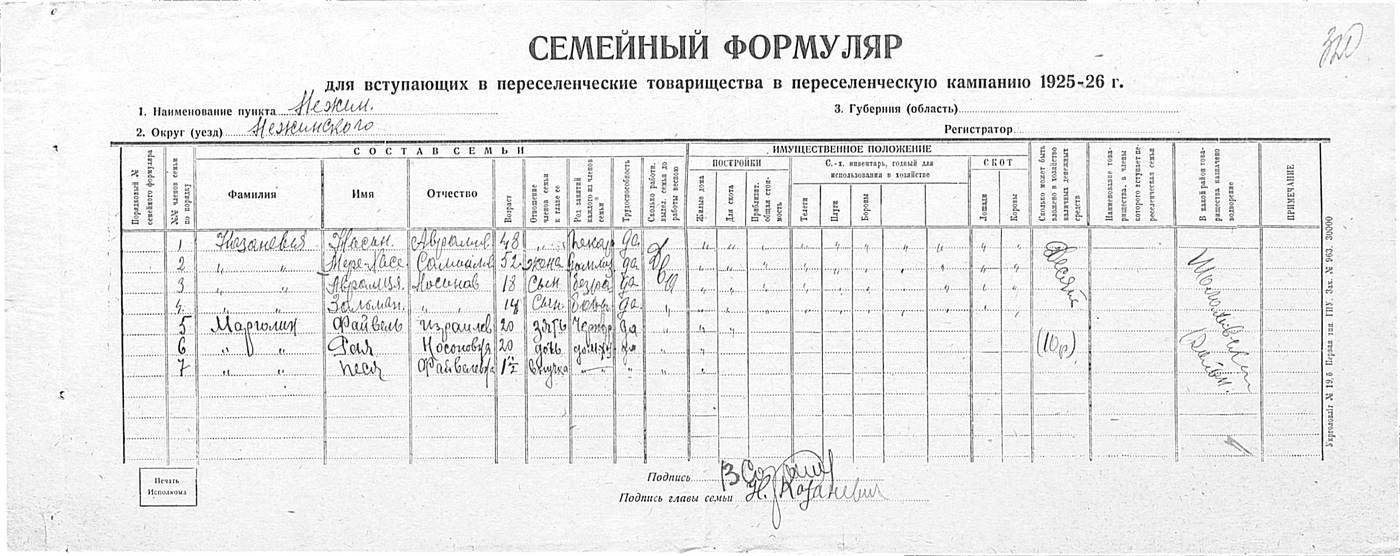 320
СЕМЕЙНЫЙ ФОРМУЛЯР
для вступающих в переселенческие товарищества в переселенческую кампанию 1925-26 г.
1. Наименование пункта Нежин.
3. Губерния (область)
2. Округ (уезд) Нежинского
Регистратор
СОСТАВ СЕМЬИ
ИМУЩЕСТВЕННОЕ ПОЛОЖЕНИЕ
Порядковый № семейного формуляра
№№ членов семьи по порядку
Фамилия
Имя
Отчество
Возраст
Отношение членов семьи к главе ее
Род занятий каждого из членов семьи
Трудоспособность
Сколько работн. выдел. семья до работы весною
ПОСТРОЙКИ
Жилые дома
Для скота
Приблизит. общая стоимость
С.-х. инвентарь, годный для использования в хозяйстве
Телеги
Плуги
Бороны
СКОТ
Лошади
Коровы
Сколько может быть вложено в хозяйство наличных денежных средств
Наименование товарищества, в члены которого вступает переселенческая семья
В какой район товарищества назначено водворение
ПРИМЕЧАНИЕ
1 Казаневич 48 " " Пекар да
2 " " 52 жена да
3 " " 18 сын да
4 " " Зальман. " " 14 сын да
5 Марголин Файвель Израилев 20 зять да
6 " " Рая Носоновна 20 дочь да
7 " " Песя Файвелевна 1½ внучка
Два
Десять
(10 р)
Район.
Печать Исполкома
Подпись
Подпись главы семьи Н. Казаневич
Укрголовліт № 19,6 Первая тип. ГПУ. Зак. № 963. 30000